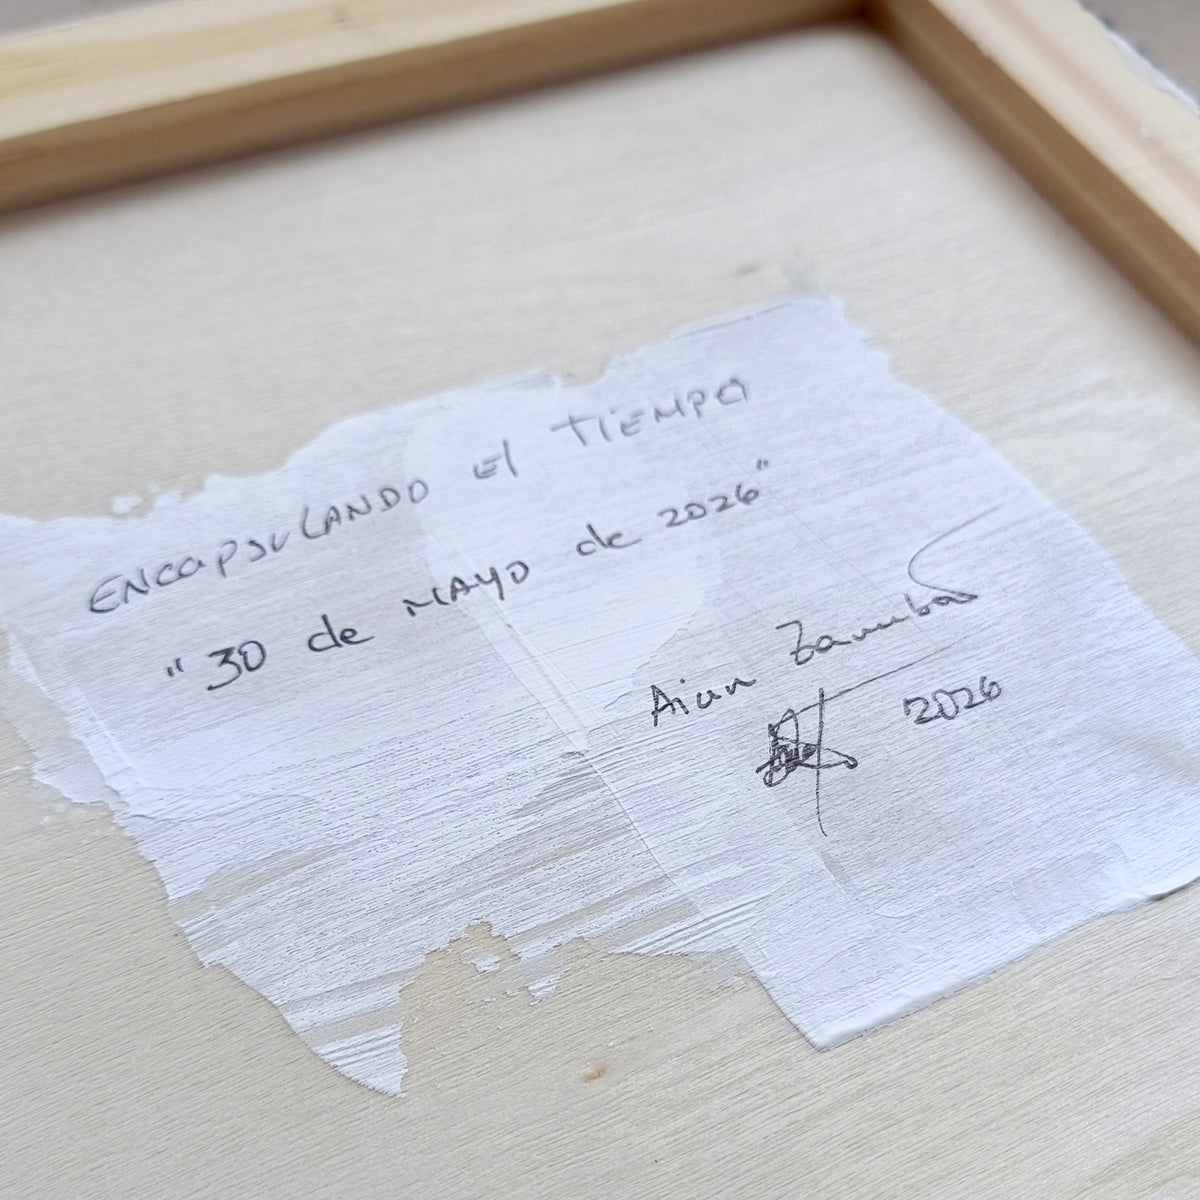 ENCAPSULANDO El TIEMPO
"30 de MAYO de 2026"
Aian Zarubas
2026